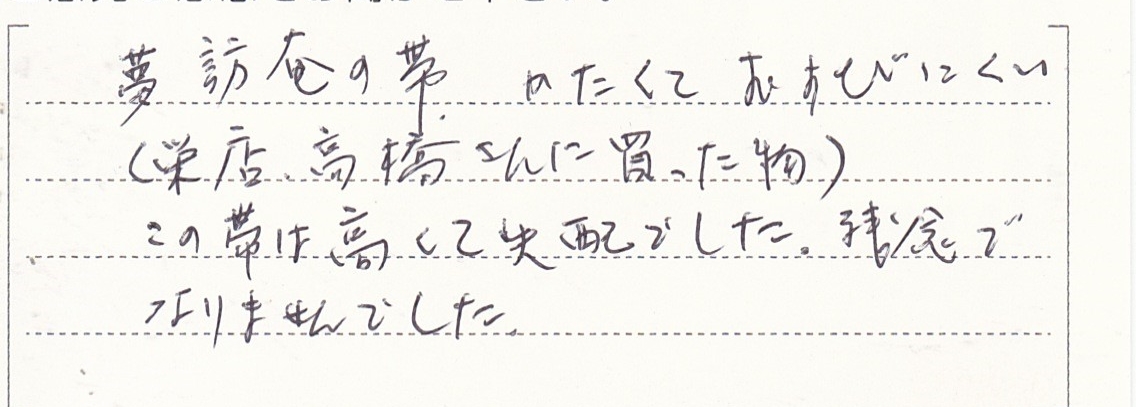 夢訪庵の帯 かたくて むすびにくい
(栄店、高橋さんに買った物)
この帯は高くて失配でした。残念で
なりませんでした。